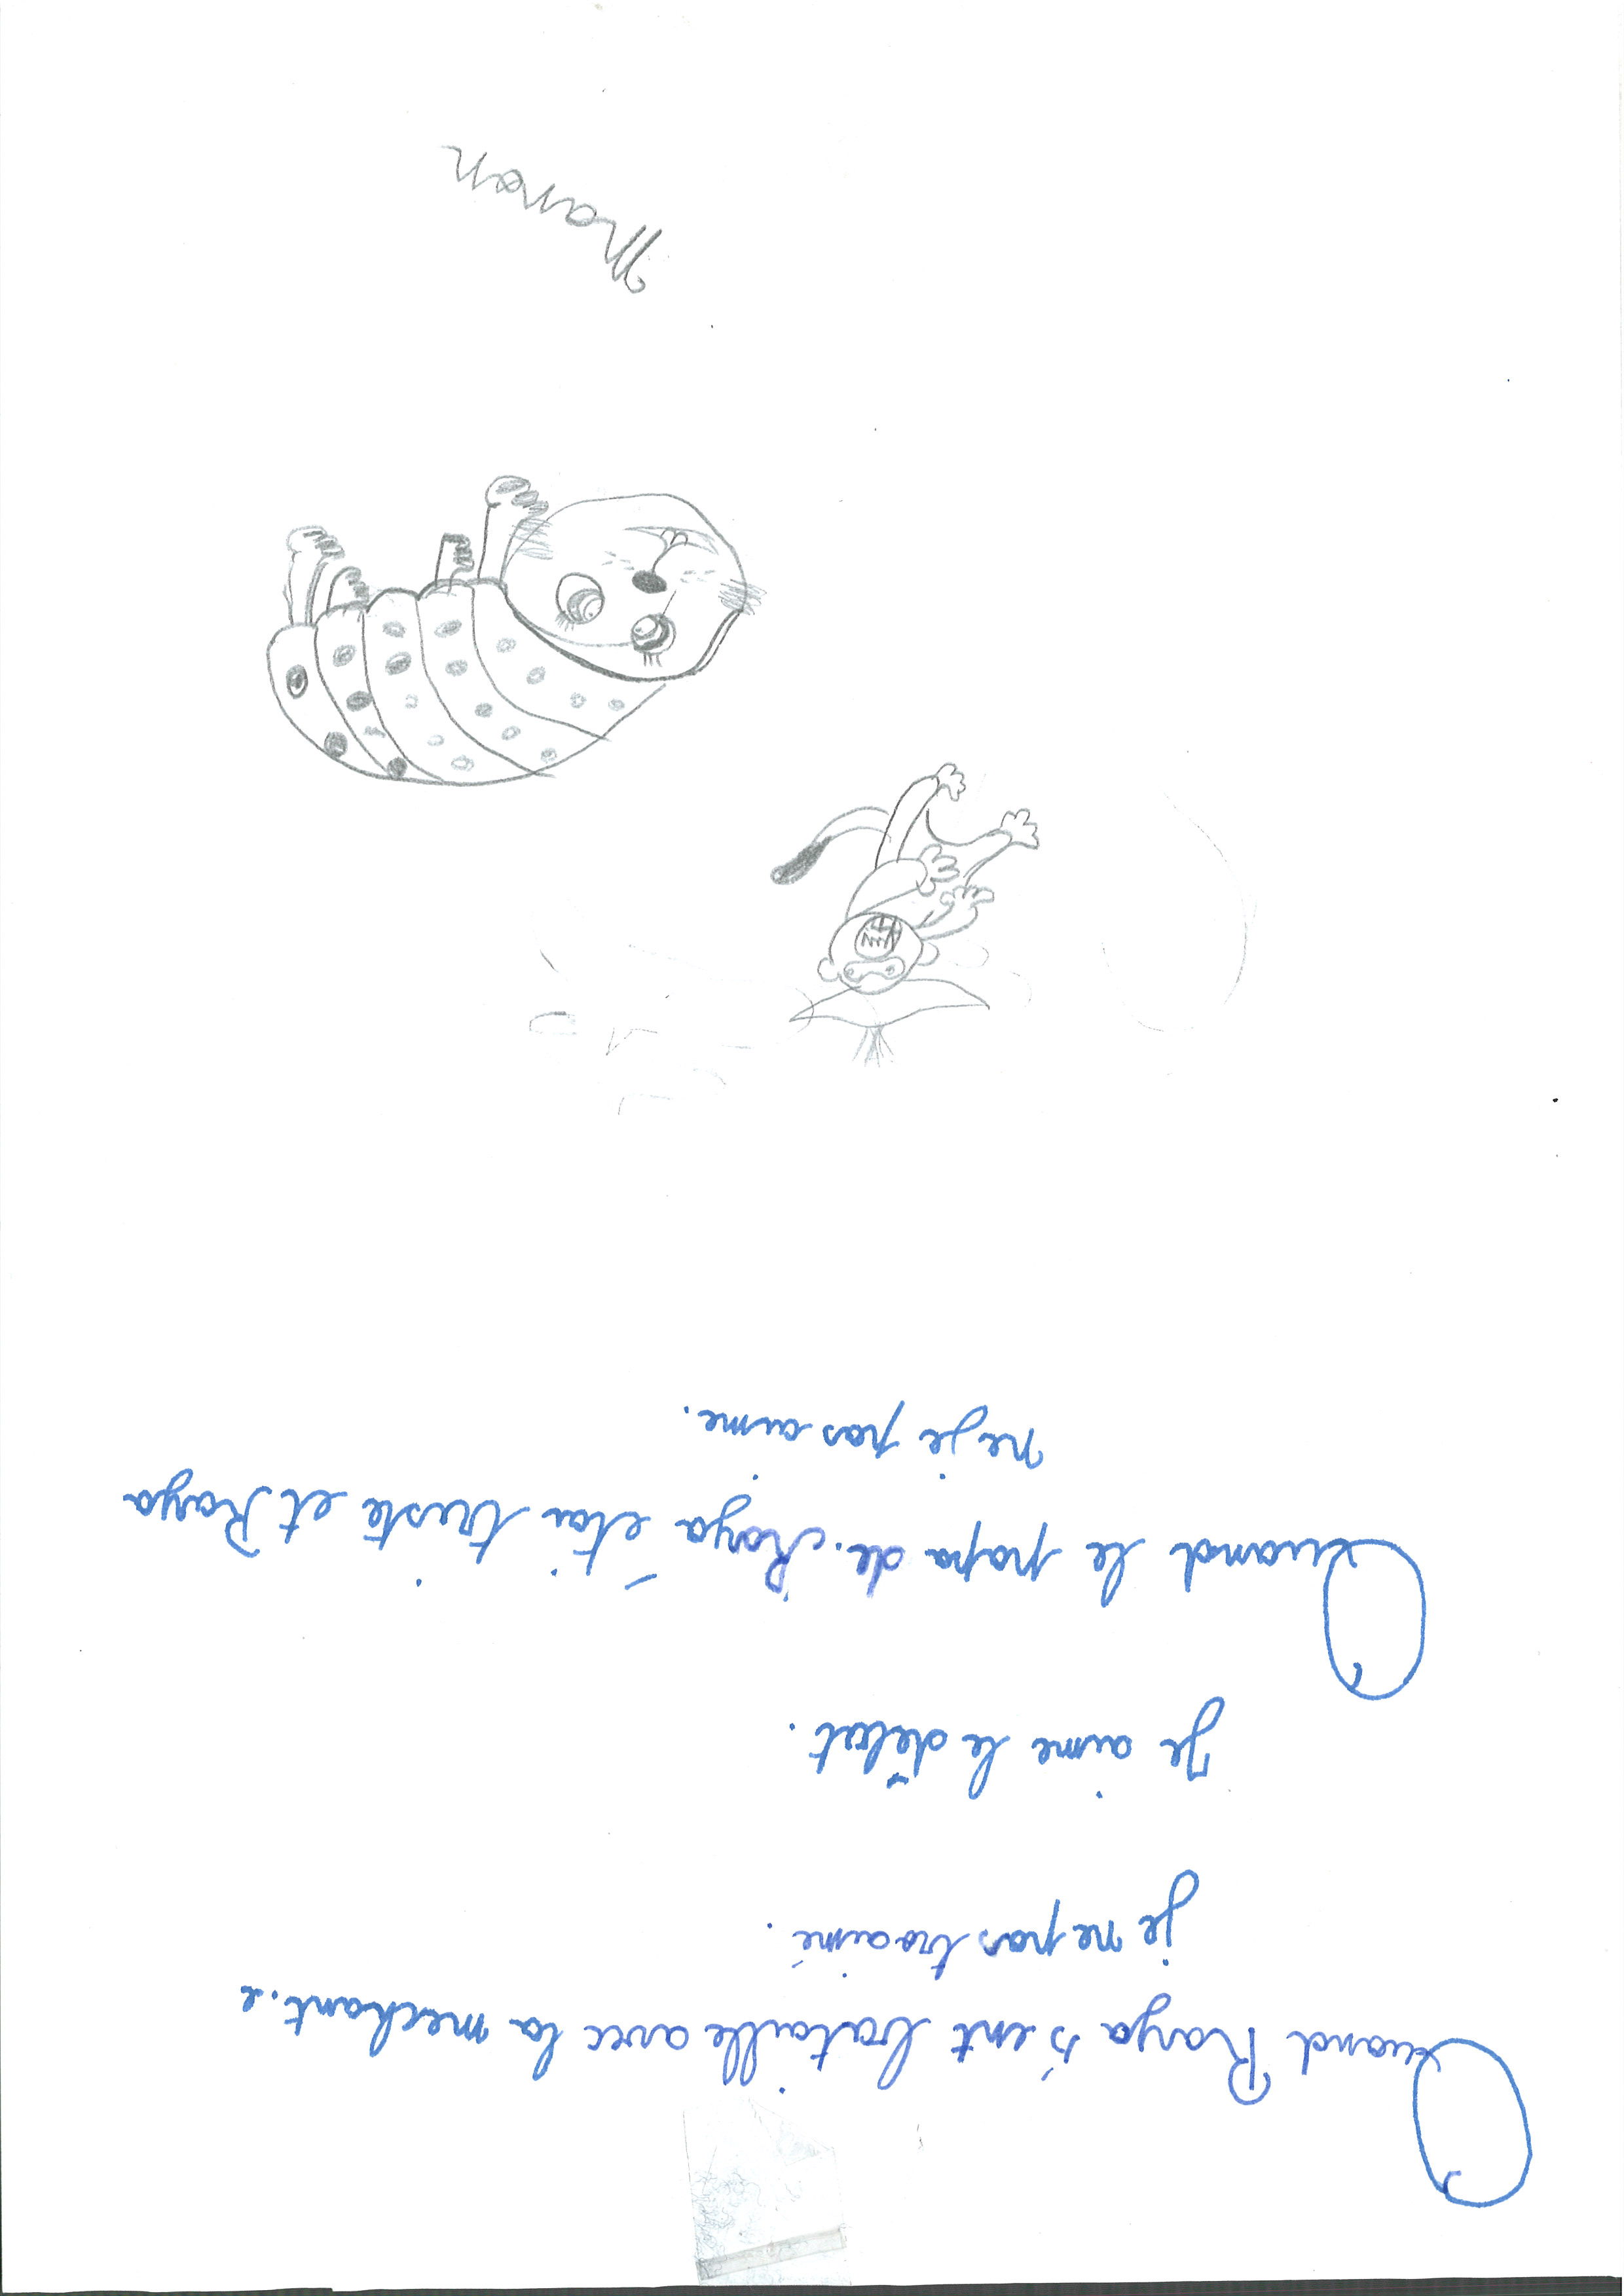 Quand Raya s'ent bataille avec la mechant.e
je ne pas tro aimé.
Je aime le début.
Quand le papa de Raya étai triste et Raya
ne je pas aime.
Manon